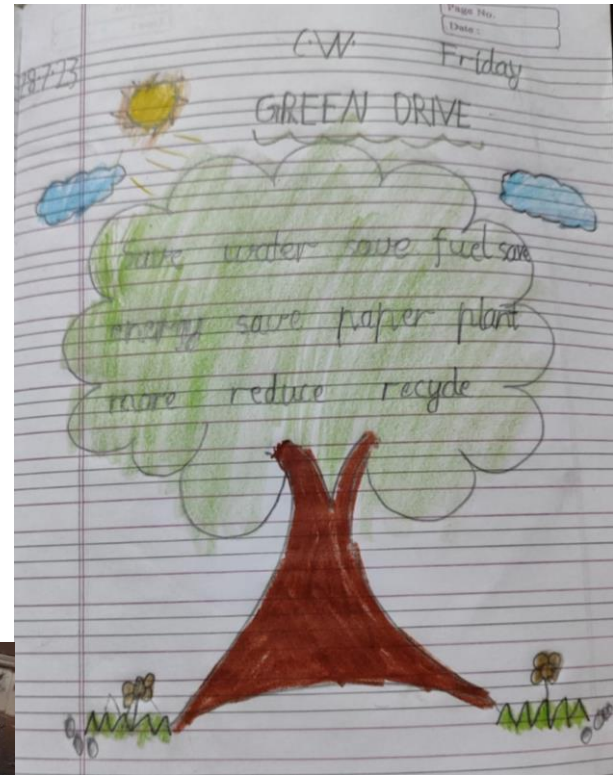 Page No.
Date:
C.W.
28-7-23 Friday
GREEN DRIVE
save water save fuel save
energy save paper plant
more reduce recycle